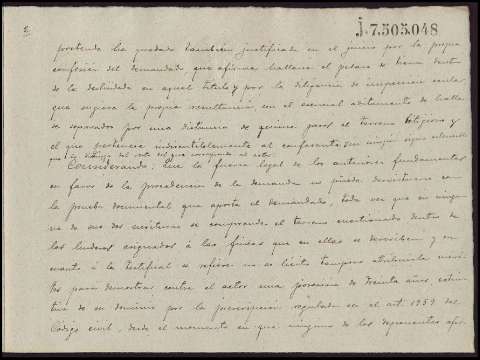 j.7.505.048
pretende ha quedado tambien justificada en el juicio por la propia
confesión del demandado que afirma hallarse el pedazo de tierra dentro
de lo deslindado en aquel título y por la diligencia de inspección ocular
que sugiera la propia resultancia con el esencial aditamento de hallar
se separados por una distancia de quince pasos el terreno litigioso y
el que pertenece indiscutiblemente al confrontante sin ningún signo exterior
que lo distinga del resto del que corresponde al actor.
Considerando: Que la fuerza legal de los anteriores fundamentos
en favor de la procedencia de la demanda no puede desvirtuarse con
la prueba documental que aporta el demandado, toda vez que en ningu
na de sus dos escrituras se comprende el terreno cuestionado dentro de
los linderos asignados á las fincas que en ellas se describen y en
cuanto á la testifical se refiere no es lícito tampoco atribuirla
para demostrar contra el actor una posesión de treinta años
de su dominio por la prescripción regulada en el art. 1959 del
Código civil, desde el momento en que ninguno de los deponentes